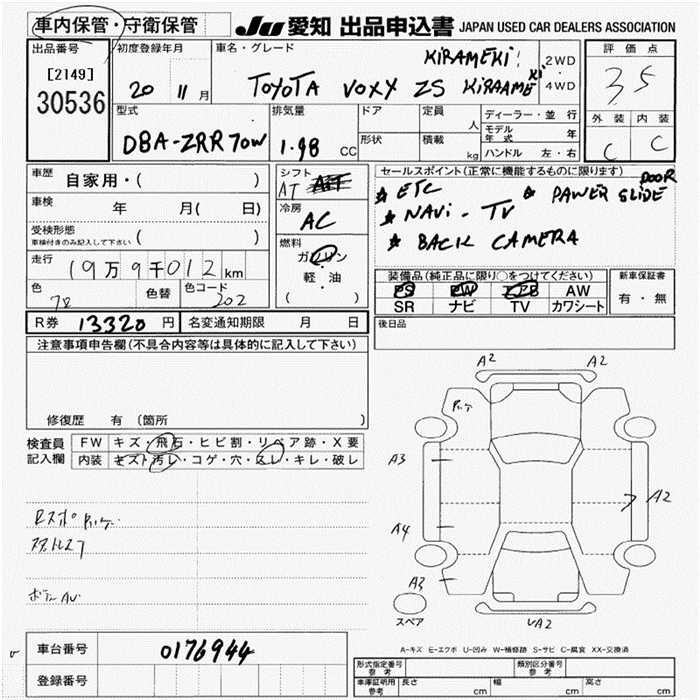 車内保管・守衛保管
JU 愛知 出品申込書 JAPAN USED CAR DEALERS ASSOCIATION
出品番号
[2149]
30536
初度登録年月
20 11 月
車名・グレード
KIRAMEKI
TOYOTA VOXY ZS KiRAAMEKI
2WD
4WD
評価点
35
外装 内装
C C
型式
DBA-ZRR70W
排気量
1.98 CC
ドア
形状
定員
人
積載
kg
ディーラー・並行
モデル年式 年
ハンドル 左・右
車歴 自家用・( )
車検 年 月( 日)
受検形態
車検付きのみ記入して下さい ( )
走行 19万9千012 km
色 色替
色コード 202
シフト
AT
冷房
AC
燃料
ガソリン
軽・油
( )
セールスポイント(正常に機能するものに限ります)
★ ETC ★ PAWER SLIDE DOOR
★ NAVi - TV
★ BACK CAMERA
装備品(純正品に限り○をつけてください)
PS PW エアB AW
SR ナビ TV カワシート
新車保証書
有・無
R券 13320 円
名変通知期限 月 日
後日品
注意事項申告欄(不具合内容等は具体的に記入して下さい)
修復歴 有 (箇所 )
検査員
記入欄
FW キズ・飛石・ヒビ割・リペア跡・X要
内装 モストラ汚レ・コゲ・穴・スレ・キレ・破レ
A2 A2
A3
A2
A4
A3
A2
スペア
A-キズ E-エクボ U-凹み W-補修跡 S-サビ C-腐食 XX-交換済
車台番号 0176944
登録番号
形式指定番号
参考
類別区分番号
参考
車庫証明用
参考
長さ cm 幅 cm 高さ cm